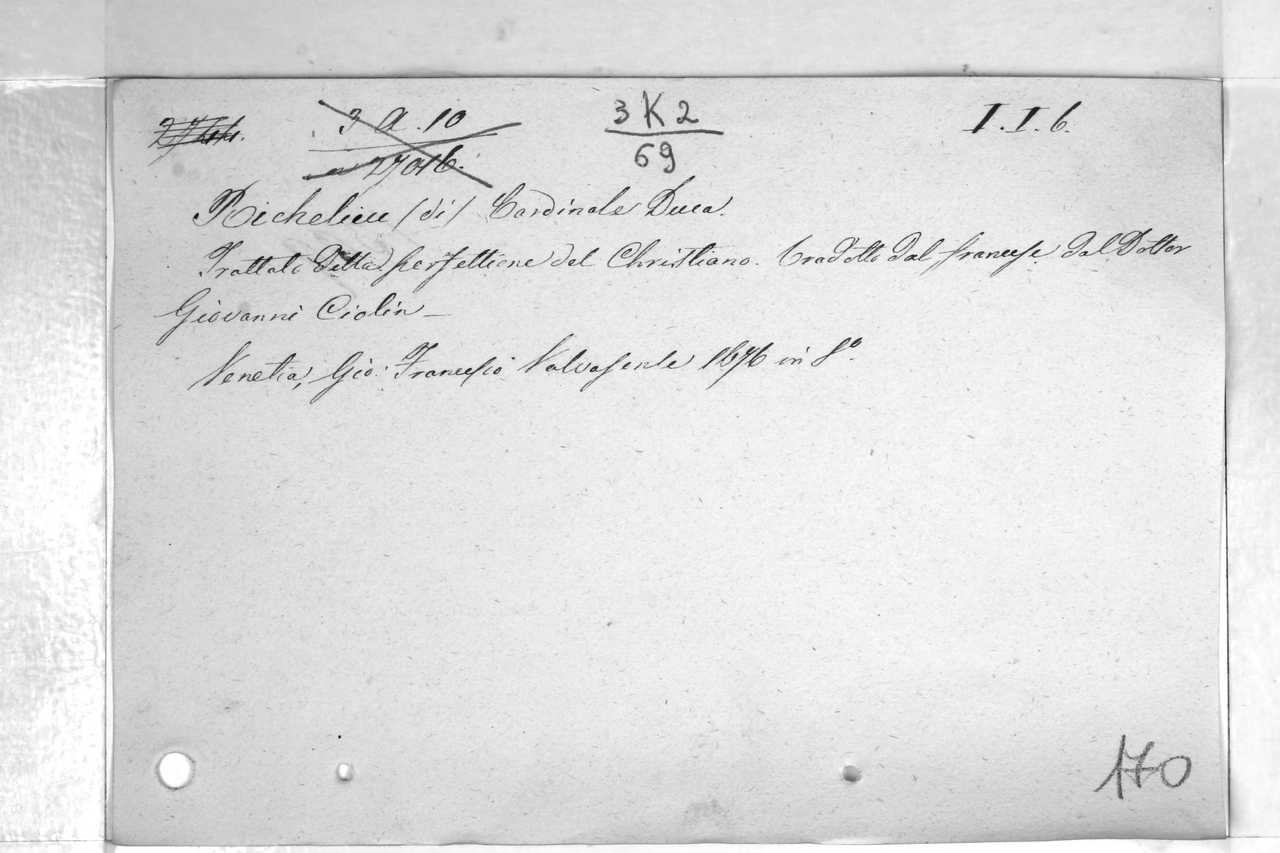 3 A. 10 3 K 2 I. I. 6.
27016. 69
Richelieu /di/ Cardinale Duca.
Trattato della perfettione del Christiano. tradotto dal francese dal Dottor
Giovanni Ciolin —
Venetia, Gio: Francesco Valvasense 1676 in 8°.
170